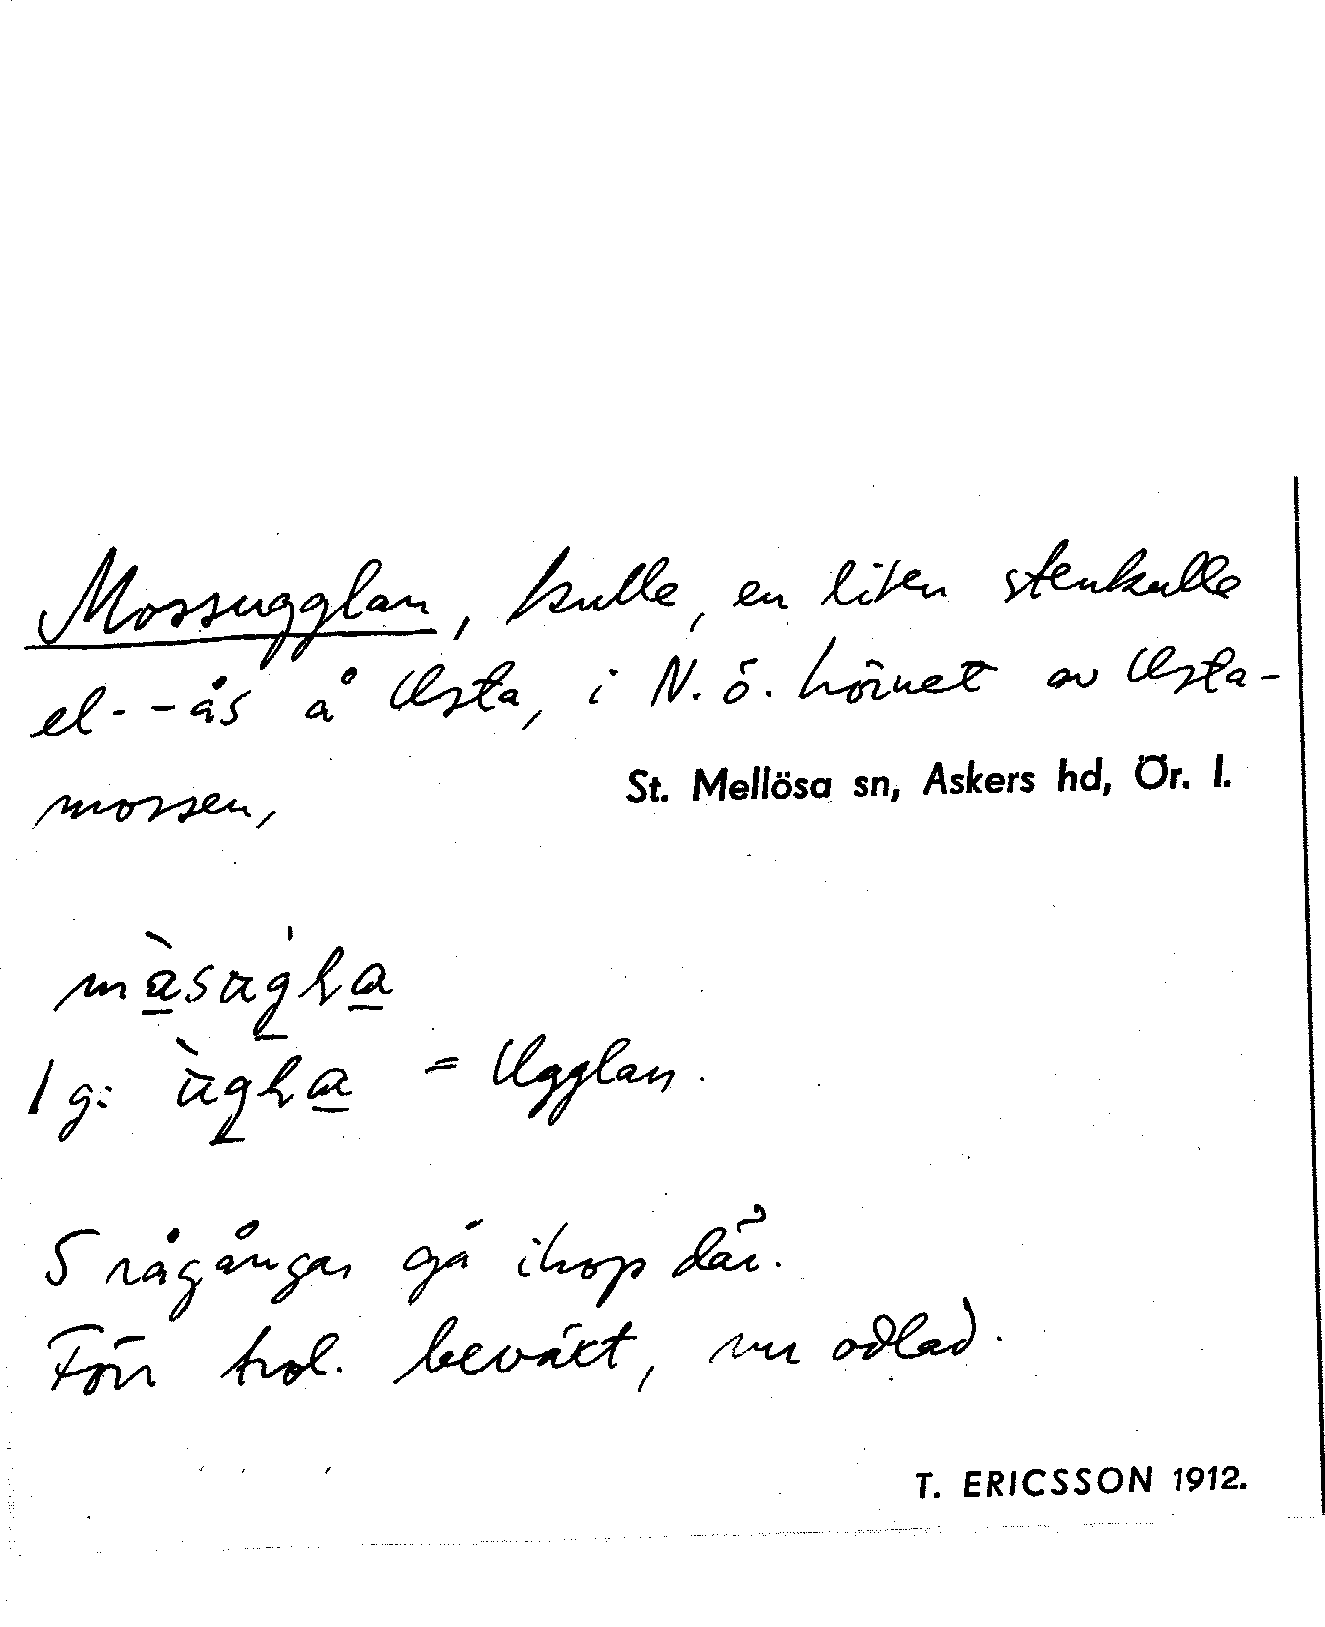 Mossugglan, kulle, en liten stenkulle
el. -ås å Usta, i N.ö. hörnet av Usta-
mossen,
St. Mellösa sn, Askers hd, Ör. l.
= Ugglan.
5 rågångar gå ihop där.
Förr trol. beväxt, nu odlad.
T. ERICSSON 1912.